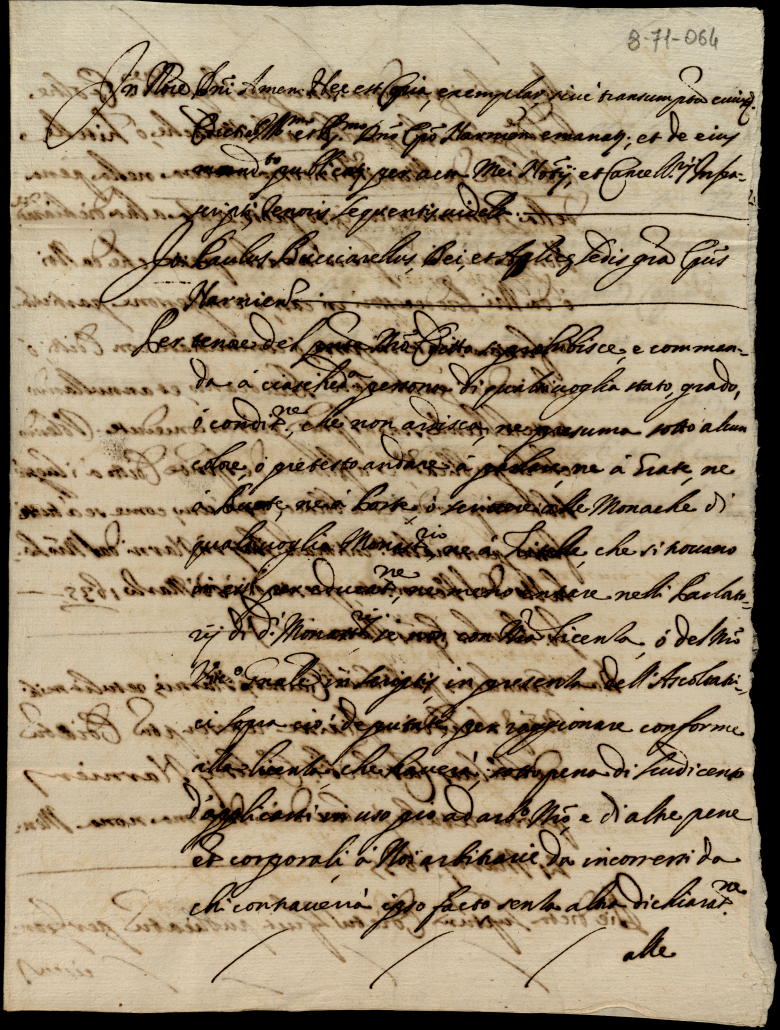 8-71-064
In Noie Dñi Amen. Hec est Copia, exemplar, sive transumptũ cuiusd.
Edicti Ill.mo et R.mo Dño Epõ Narnien emanaq, et de eius
mand.to publicaq per acta mei Notij, et Cancell.rij Infra-
scripti, tenoris sequentis videlt
Jo: Paulus Bucciarellus, Dei, et Aplicę Sedis grã Epũs
Narnien
Per tenore del pnte nrõ Editto si prohibisce, e comman-
da à ciascheda persona di qualsivoglia stato, grado,
ó condit.ne, che non ardisca, ne presuma sotto alcun
colore, ó pretesto andare à parlare, ne à Grate, ne
à Ruote, ne à Porte ó scrivere alle Monache di
qualsivoglia Monast.rio, ne à Zitelle, che si trovano
in essi per educat.ne, ne meno entrare nelli Parlato-
rij di d.i Monast.rij se non con nrã licenza, ó del nrõ
Vic.o Gnale in scriptis, in presenza dell'Ascoltatri-
ci sopra ciò deputate, per raggionare conforme
alla licenza, che haverà, sotto pena di scudi cento
d'applicarsi in uso pio ad arb.o nrõ, e di altre pene
et corporali, à Noi arbitrarie da incorrersi da
chi contraverrà ipso facto senza altra dichiarat.ne
alle